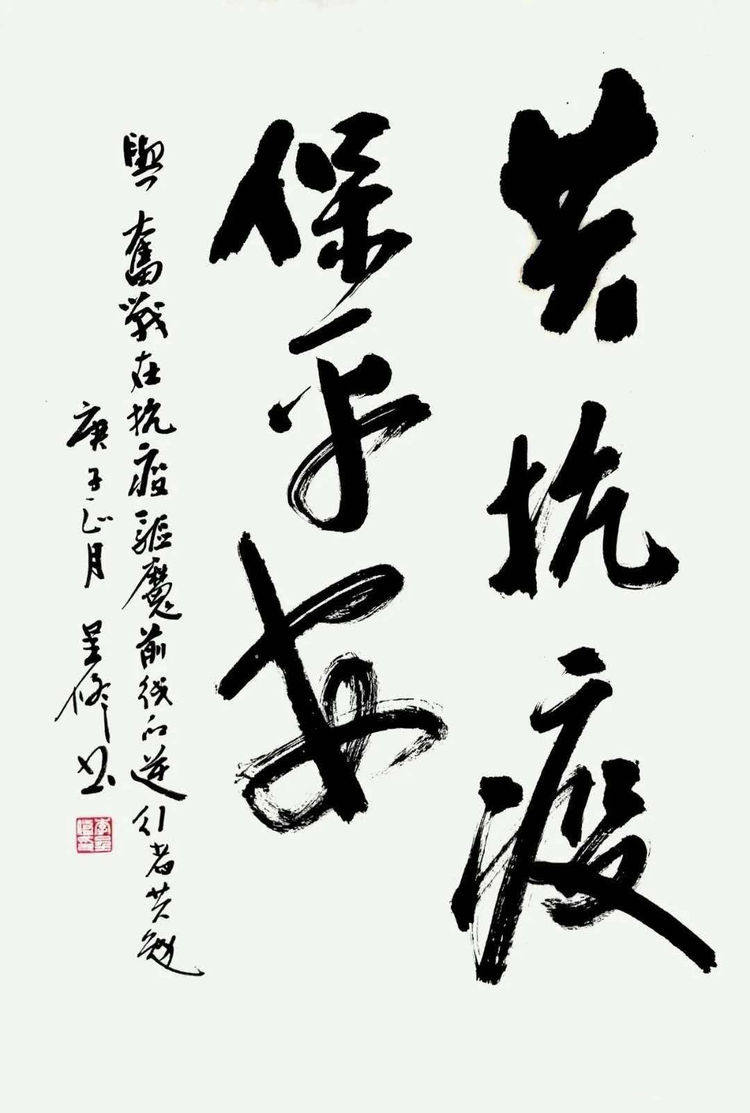 共抗疫
保平安
與奮戰在抗疫驅魔前线的逆行者共勉
庚子正月呈修书